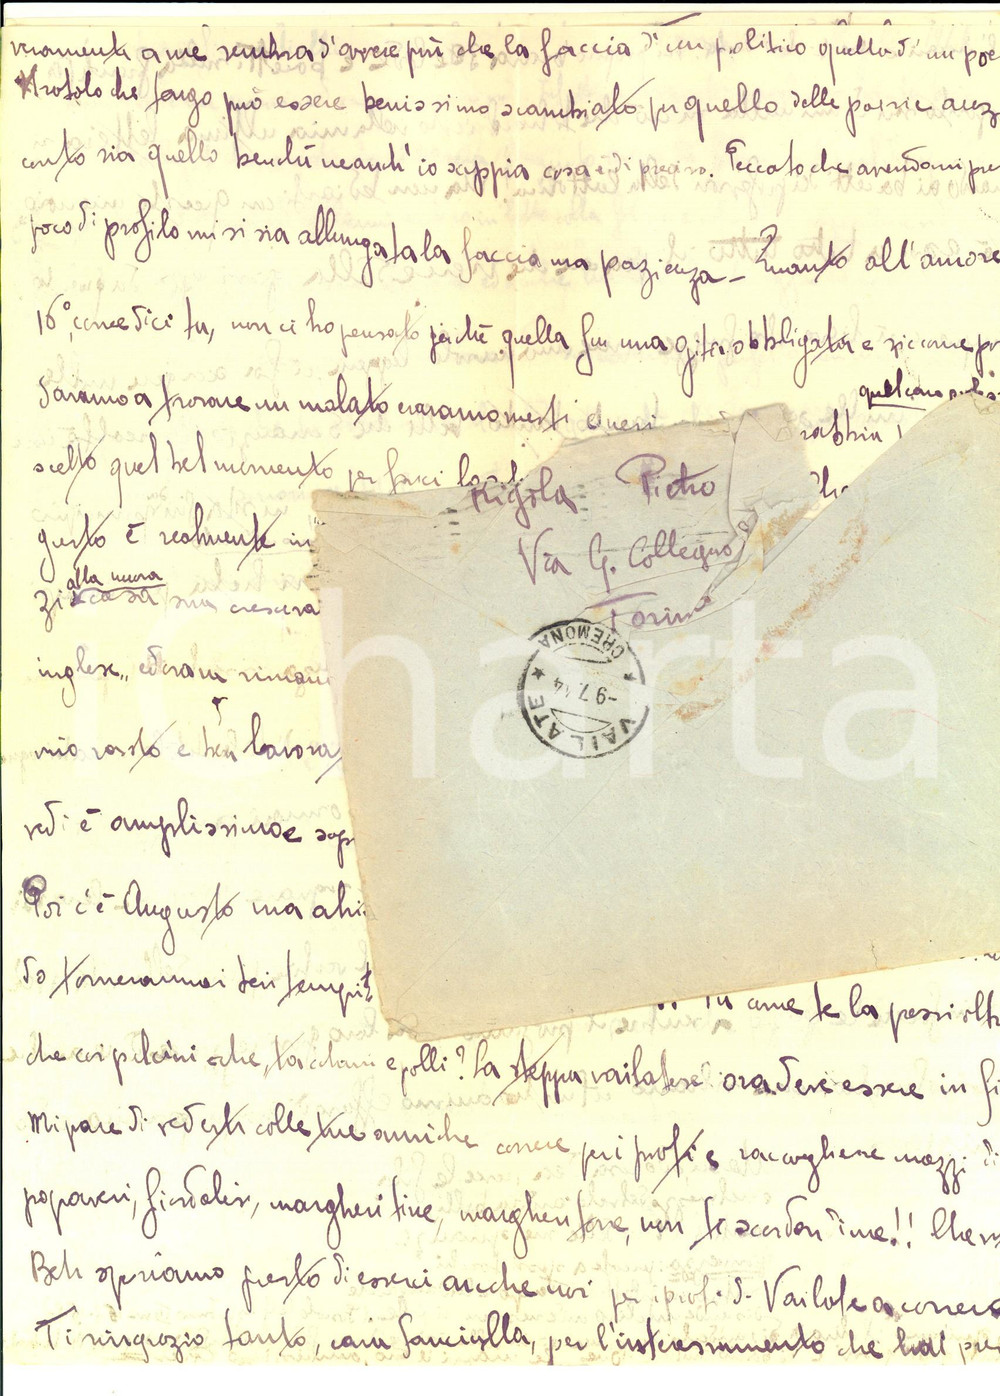 veramente a me sembra d'avere più che la faccia d'un politico quella d'un poe
Il rotolo che tengo può essere benissimo scambiato per quello delle poesie anz
canto sia quello benché neanch'io sappia cosa è di preciso. Peccato che avendomi pre
poco di profilo mi si sia allungata la faccia ma pazienza - Quanto all'amore
16°, come dici tu, non ci ho pensato perché quella fu una gita obbligata e siccome
davamo a trovare un malato eravamo mesti e neri rabbia!
qualcuno
scelto quel bel momento per farci
gusto è realmente in
alla nuova
zi casa sua
inglese,
mio vasto e ben lavora
vedi è amplissimo e sopr
Poi c'è Augusto ma ahi
do torneranno i bei tempi
come te la passi oltr
che coi pulcini e che, tacchini e polli? La steppa vailatese ora deve essere in fi
Mi pare di vederti colle tue amiche correre pei prati e raccogliere mazzi di
papaveri, fiordalisi, margheritine, margheritone, non ti scordar di me!!
Beh speriamo presto di esserci anche noi pei prati di Vailate a correre
Ti ringrazio tanto, cara fanciulla, per l'interessamento che hai pre
Rigola Pietro
Via G. Collegno
Torino
VAILATE
CREMONA
-9.7.44
Charta